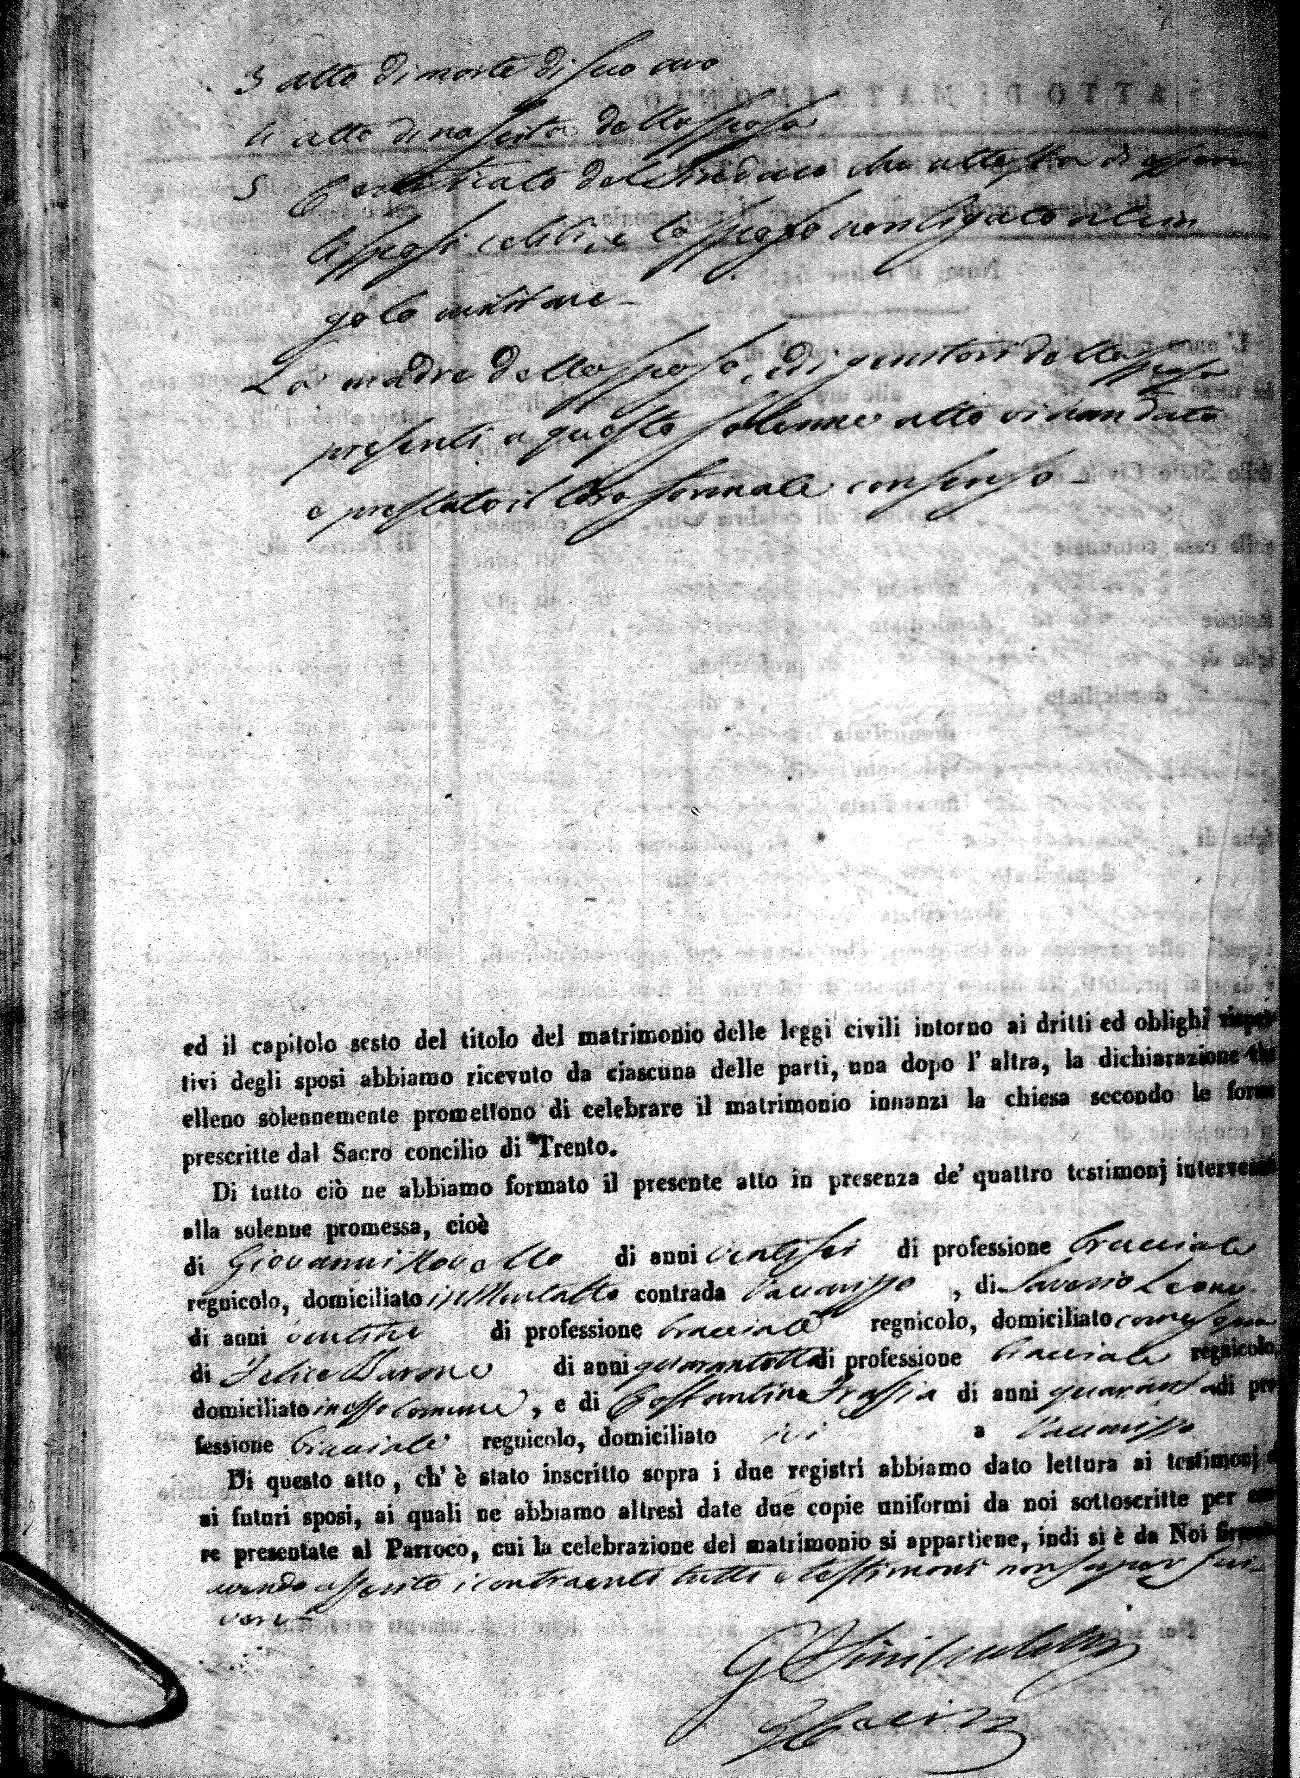 3 atto di morte di suo avo
4 atto di nascita della sposa
5 Certificato del Sindaco che attesta di essere
li sposi celibi, e lo sposo non ligato a lcun
golo militare
La madre dello sposo, ed i genitori della sposa
presenti a questo solenne atto àn dato
e prestato il loro formale consenso
ed il capitolo sesto del titolo del matrimonio delle leggi civili intorno ai dritti ed oblighi rispet
tivi degli sposi abbiamo ricevuto da ciascuna delle parti, una dopo l' altra, la dichiarazione che
elleno solennemente promettono di celebrare il matrimonio innanzi la chiesa secondo le forme
prescritte dal Sacro concilio di Trento.
Di tutto ciò ne abbiamo formato il presente atto in presenza de' quattro testimonj intervenuti
alla solenne promessa, cioè
di Giovanni Novello di anni ventisei di professione bracciale
regnicolo, domiciliato in contrada Vaccarizzo , di Saverio Leone
di anni ventitre di professione bracciale regnicolo, domiciliato come sopra
di Felice Barone di anni quarantotto di professione bracciale regnicolo,
domiciliato in esso Comune , e di Costantino Frassia di anni quaranta di pro
fessione bracciale regnicolo, domiciliato ivi a Vaccarizzo
Di questo atto , ch' è stato inscritto sopra i due registri abbiamo dato lettura ai testimonj e
ai futuri sposi, ai quali ne abbiamo altresì date due copie uniformi da noi sottoscritte per esse
re presentate al Parroco, cui la celebrazione del matrimonio si appartiene, indi si è da Noi firmato
avendo asserito i contraenti tutti e testimoni non saper scri
vere